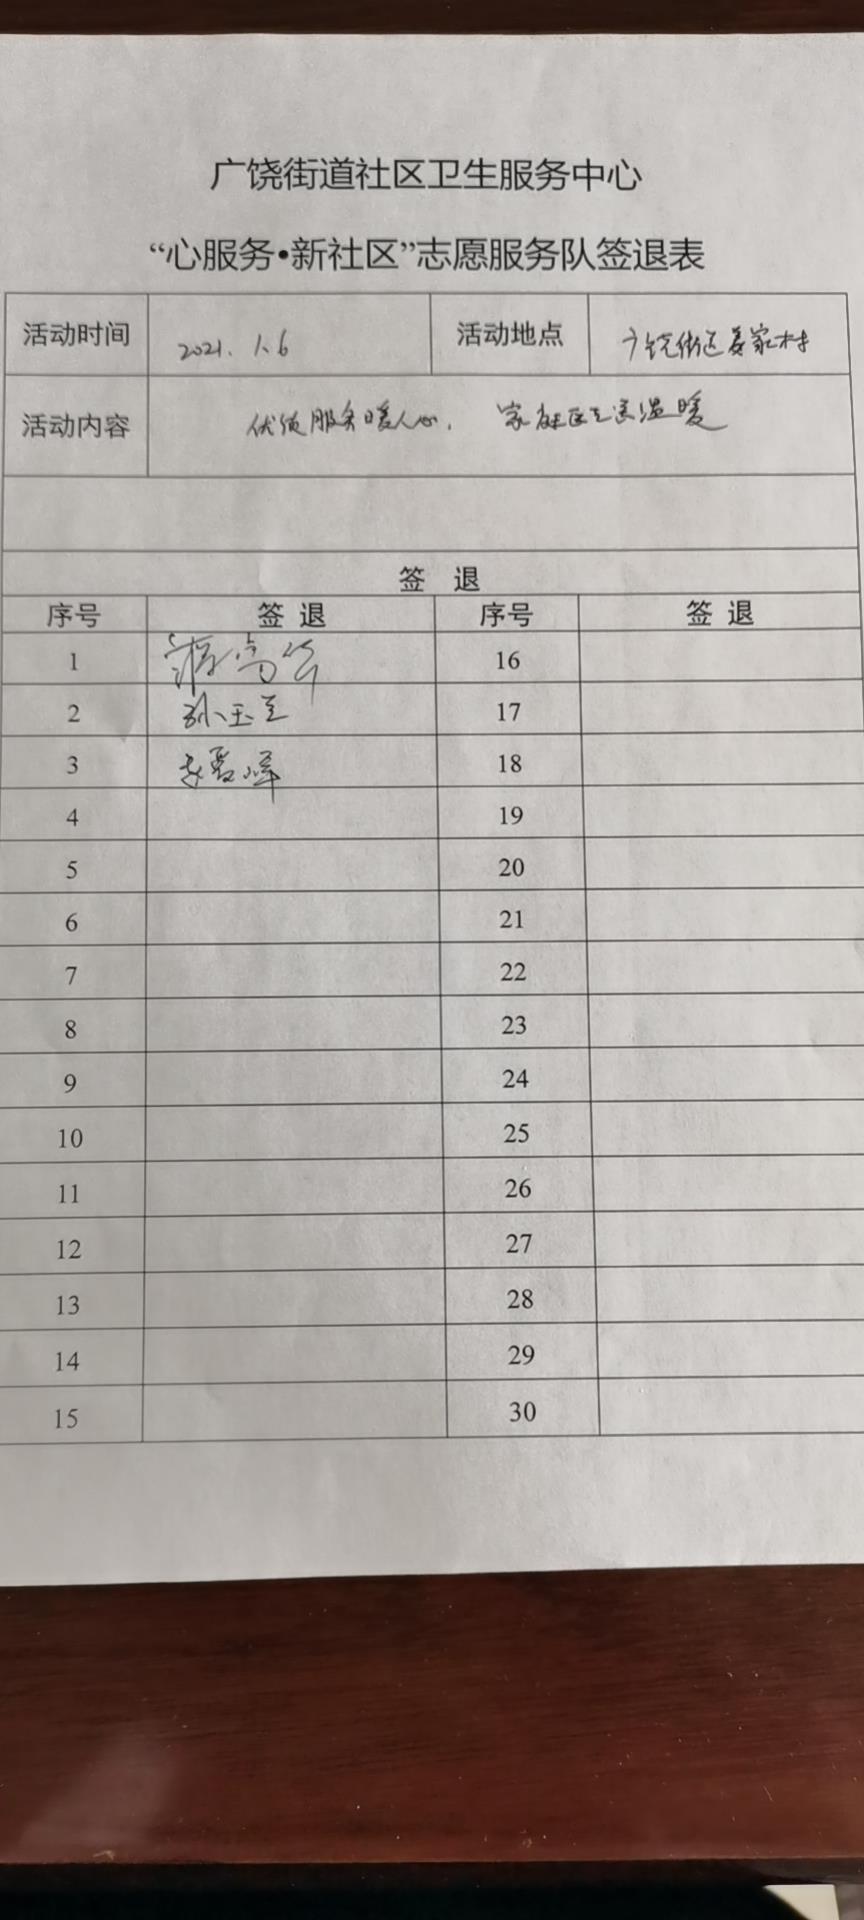 广饶街道社区卫生服务中心
“心服务•新社区”志愿服务队签退表
活动时间 2021. 1. 6 活动地点 广饶街道聂家村
活动内容 优质服务暖人心, 家庭医生送温暖
签 退
序号 签 退 序号 签 退
1 16
2 孙玉兰 17
3 18
4 19
5 20
6 21
7 22
8 23
9 24
10 25
11 26
12 27
13 28
14 29
15 30